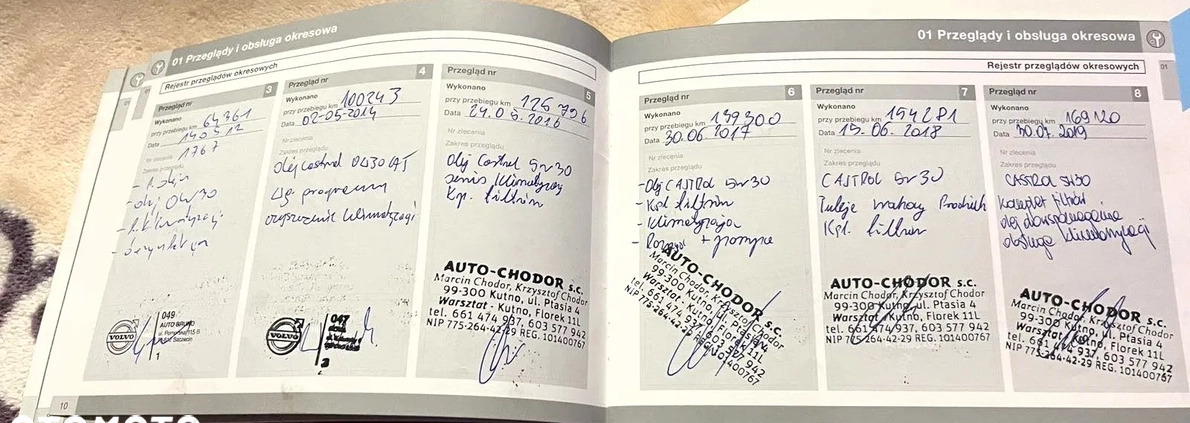 01 Przeglądy i obsługa okresowa
Rejestr przeglądów okresowych
Przegląd nr 3
Wykonano
przy przebiegu km 64361
Data
Nr zlecenia 1767
Zakres przeglądu
- olej 0W30
049
AUTO BRUNO
VOLVO
1
Przegląd nr 4
Wykonano
przy przebiegu km 100243
Data 02-05-2014
Nr zlecenia
Zakres przeglądu
Olej castrol 0W30
wg programu
czyszczenie klimatyzacji
VOLVO
047
Przegląd nr 5
Wykonano
przy przebiegu km 125796
Data 24.05.2016
Nr zlecenia
Zakres przeglądu
Olej Castrol 5w30
serwis klimatyzacji
Kpl. filtrów
AUTO-CHODOR s.c.
Marcin Chodor, Krzysztof Chodor
99-300 Kutno, ul. Ptasia 4
Warsztat - Kutno, Florek 11L
tel. 661 474 937, 603 577 942
NIP 775-264-42-29 REG. 101400767
10
01 Przeglądy i obsługa okresowa
Rejestr przeglądów okresowych
01
Przegląd nr 6
Wykonano
przy przebiegu km 139300
Data 30.06.2017
Nr zlecenia
Zakres przeglądu
- Olej CASTROL 5w30
- Kpl filtrów
- Klimatyzacja
- Rozrząd + pompa
AUTO-CHODOR s.c.
Marcin Chodor, Krzysztof Chodor
99-300 Kutno, ul. Ptasia 4
Warsztat - Kutno, Florek 11L
tel. 661 474 937, 603 577 942
NIP 775-264-42-29 REG. 101400767
Przegląd nr 7
Wykonano
przy przebiegu km 154281
Data 15.06.2018
Nr zlecenia
Zakres przeglądu
CASTROL 5w30
Tuleje wahaczy
Kpl. filtrów
AUTO-CHODOR s.c.
Marcin Chodor, Krzysztof Chodor
99-300 Kutno, ul. Ptasia 4
Warsztat - Kutno, Florek 11L
tel. 661 474 937, 603 577 942
NIP 775-264-42-29 REG. 101400767
Przegląd nr 8
Wykonano
przy przebiegu km 169120
Data 30.07.2019
Nr zlecenia
Zakres przeglądu
CASTROL 5W30
Komplet filtrów
olej
obsługa klimatyzacji
AUTO-CHODOR s.c.
Marcin Chodor, Krzysztof Chodor
99-300 Kutno, ul. Ptasia 4
Warsztat - Kutno, Florek 11L
tel. 661 474 937, 603 577 942
NIP 775-264-42-29 REG. 101400767
OTOMOTO